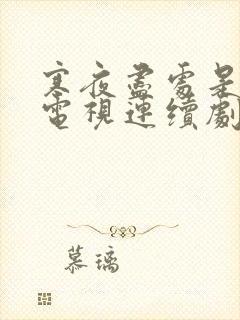 寒夜盡處是
電視連續劇
慕璃